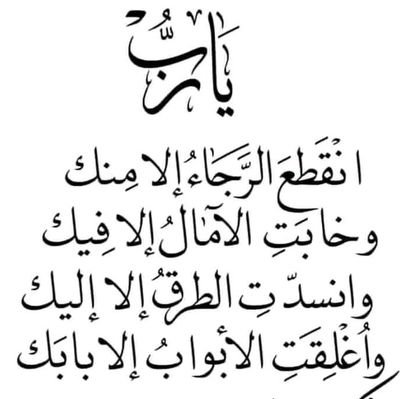 يَا رَبُّ
انْقَطَعَ الرَّجَاءُ إلا مِنك
وخابَتِ الآمَالُ إلا فِيك
وانسدّتِ الطرقُ إلا إليك
واُغْلِقَتِ الأبوابُ إلا بابَك